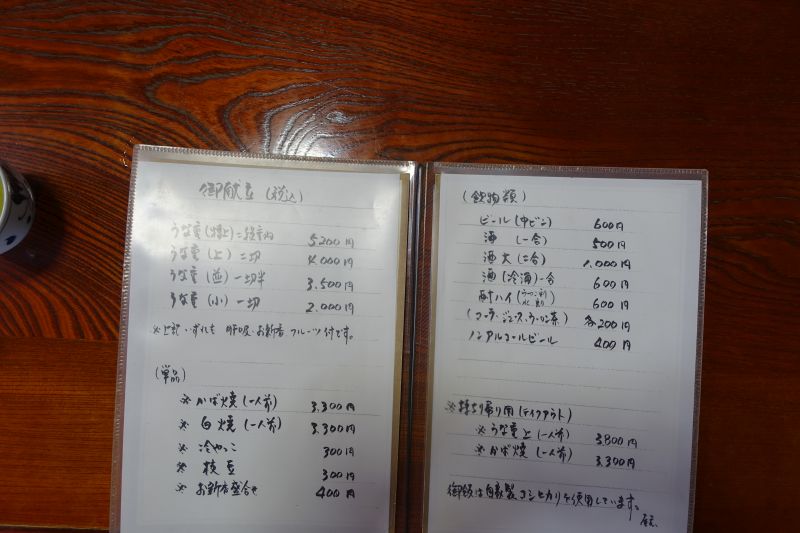 御献立(税込)
うな重(特上)二段重内 5,200円
うな重(上)二切 4,000円
うな重(並)一切半 3,500円
うな重(小)一切 2,000円
※上記いずれも 肝吸・お新香 フルーツ付です。
(単品)
※ かば焼(一人前) 3,300円
※ 白焼(一人前) 3,300円
※ 冷やっこ 300円
※ 枝豆 300円
※ お新香盛合せ 400円
(飲物類)
ビール(中ビン) 600円
酒 (一合) 500円
酒大(二合) 1,000円
酒(冷酒)一合 600円
酎ハイ 600円
(コーラ・ジュース・ウーロン茶) 各200円
ノンアルコールビール 400円
※持ち帰り用(テイクアウト)
※ うな重上(一人前) 3,800円
※ かば焼(一人前) 3,300円
御飯は自家製コシヒカリを使用しています。